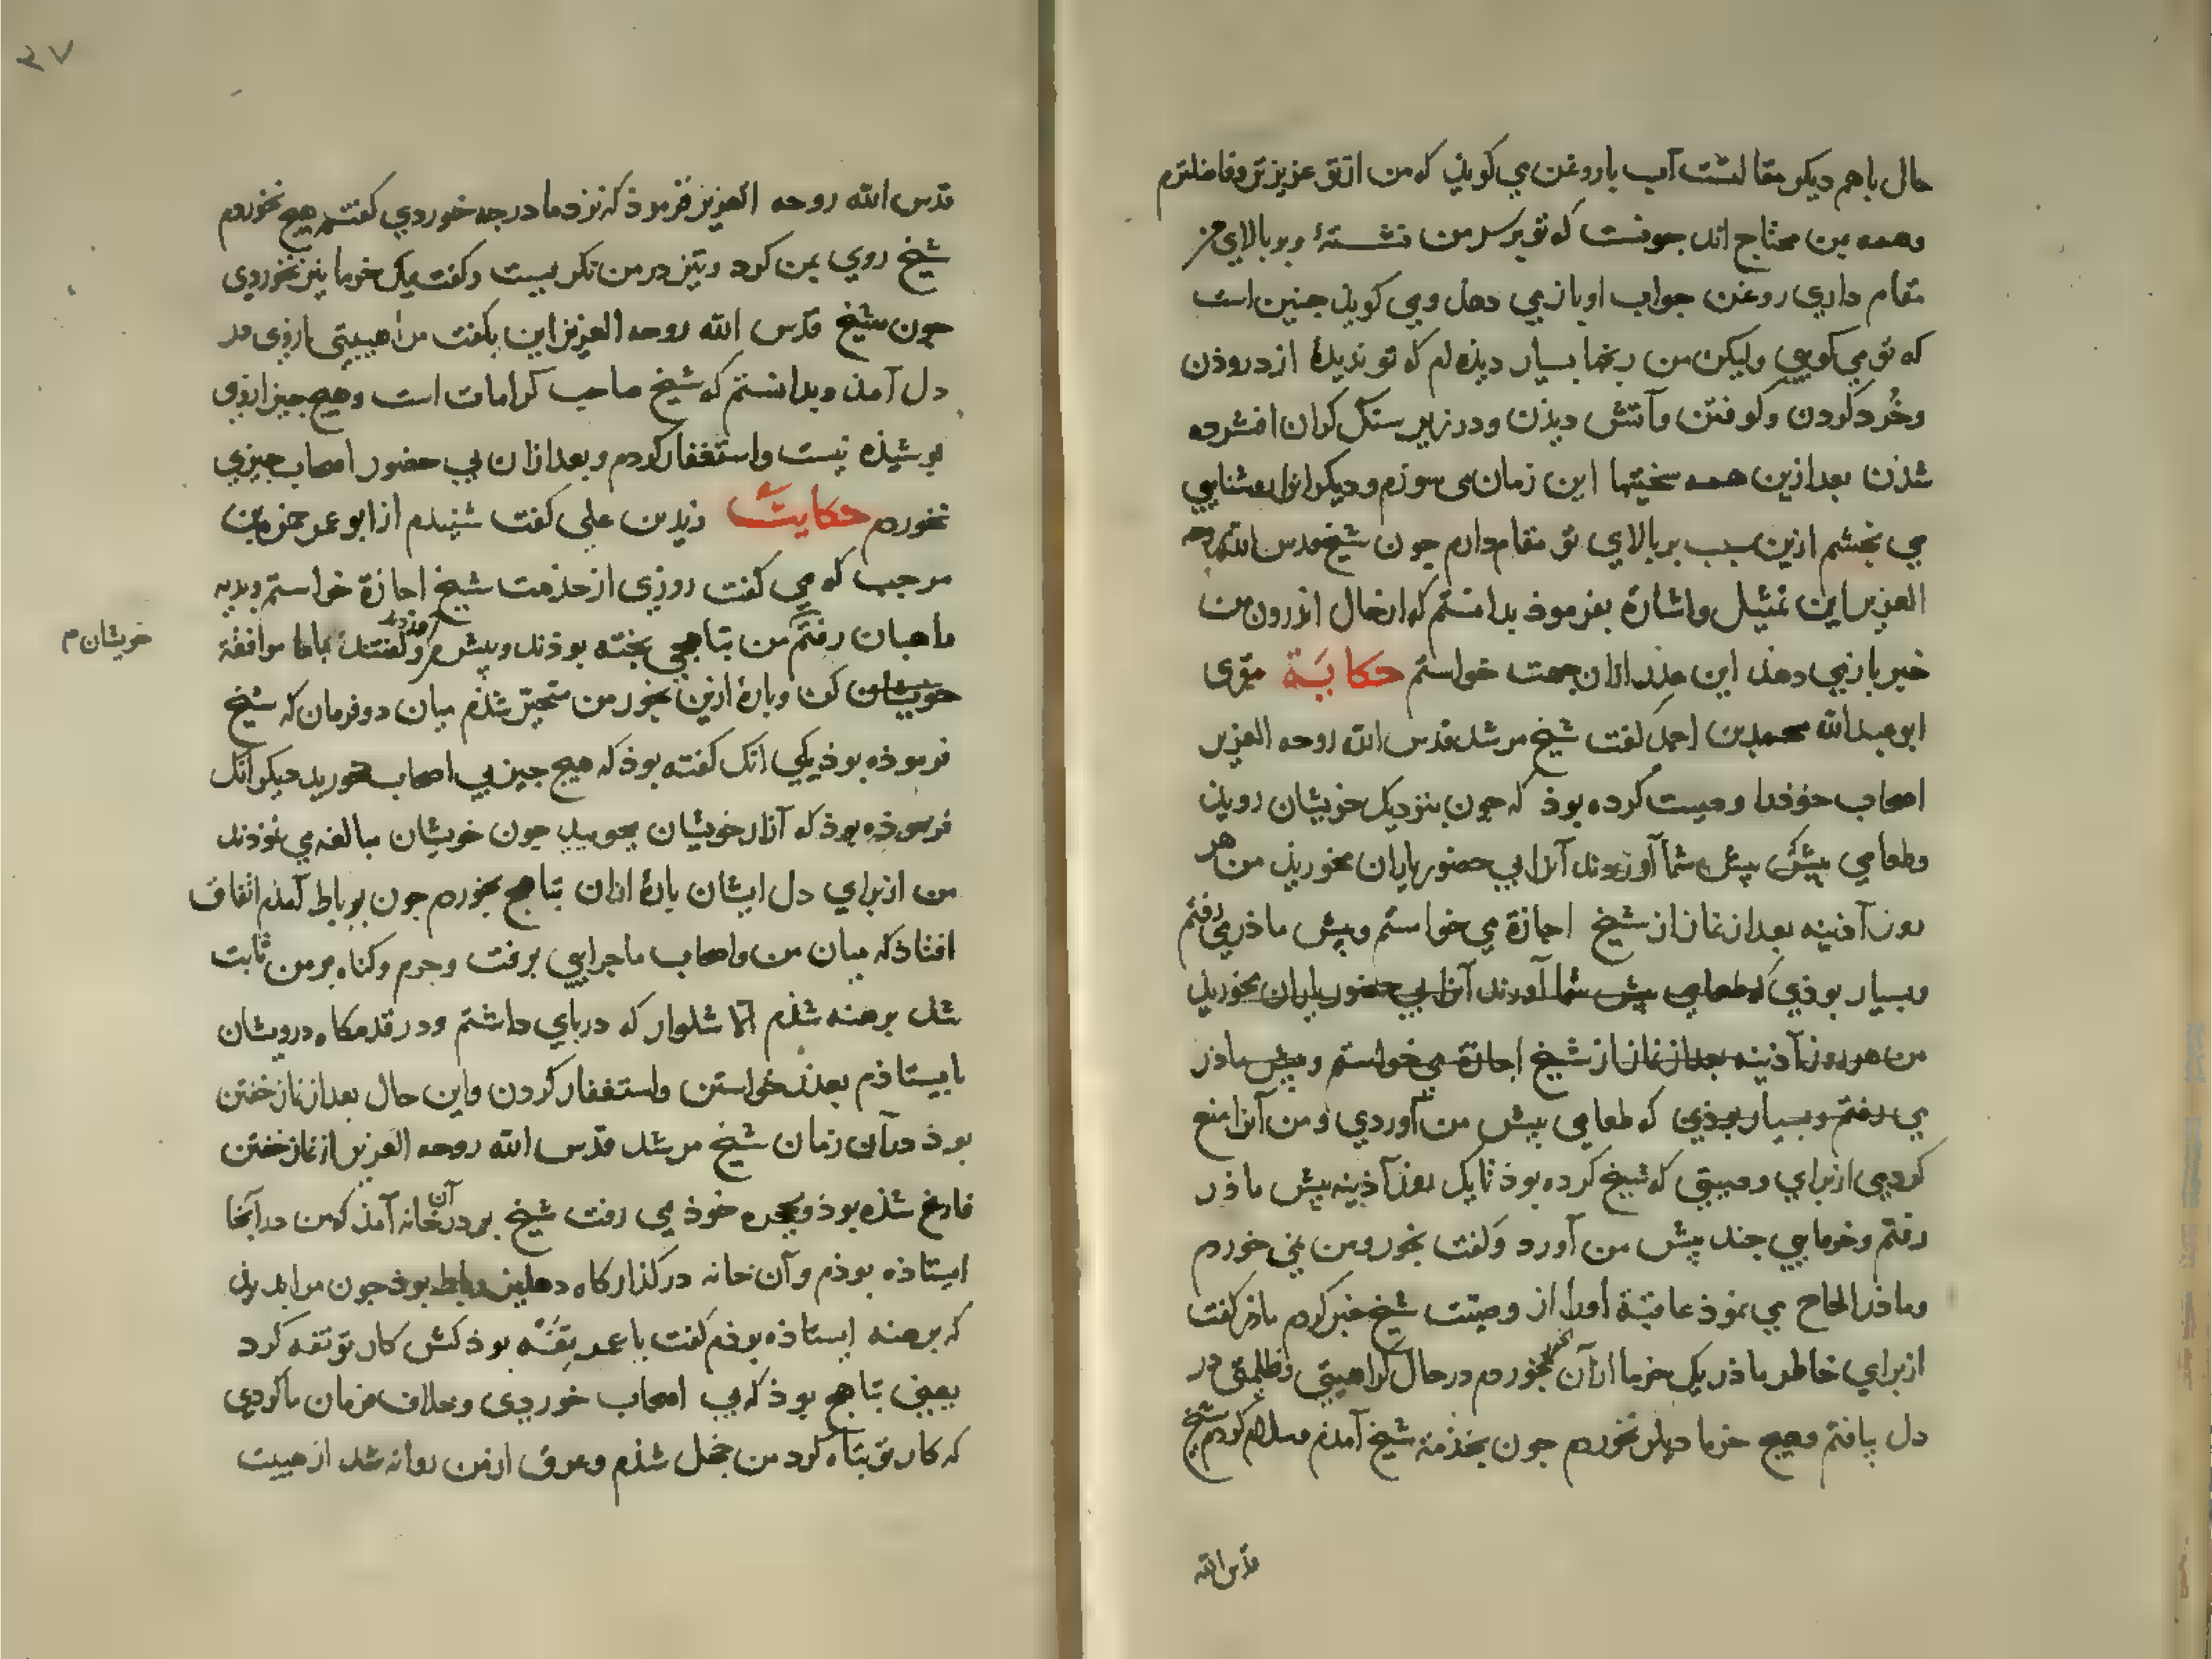 حال باهم دیکر مقالتست آب باروغن می کویذ که من ازتو عزیزتر وفاضلترم
وهمه بمن محتاج اند جونست که تو برسر من نشستهٔ وبر بالای من
مقام داری روغن جواب اوبازمی دهد ومی کویذ جنین است
که تو می کویی ولیکن من رنجها بسیار دیذه ام که تو ندیدهٔ از دروذن
وخُرد کردن وکوفتن وآتش دیذن ودر زیر سنک کران افشرده
شذن بعدازین همه سختیها این زمان می سوزم ودیکرانرا روشنایی
می بخشم ازین سبب بربالای تو مقام دارم جون شیخ قدس الله روحه
العزیز این تمثیل واشارة بفرموذ بدانستم که از حال اندرون من
خبر بازمی دهذ این عذر ازان جهت خواستم حکایَة مقری
ابوعبدالله محمدبن احمد کفت شیخ مرشد قدس الله روحه العزیز
اصحاب خوذرا وصیت کرده بوذ که جون بنزدیک خویشان رویذ
وطعامی پیش شما آورند آنرا بی حضور یاران مخوریذ من هر
روز آذینه بعد از نماز از شیخ اجازة می خواستم وپیش ماذر می رفتم
وبسیار بوذی که طعامی پیش شما آورند آنرا بی حضور یاران مخورید
من هر روز آذینه بعد از نماز از شیخ اجازة می خواستم وپیش ماذر
می رفتم وبسیار بوذی که طعامی پیش من آوردی ومن آنرا منع
کردمی ازبرای وصیتی که شیخ کرده بوذ تا یک روز آذینه پیش ماذر
رفتم وخرمایی جند پیش من آورد وکفت بخور ومن نمی خوردم
وماذر الحاح می نموذ عاقبة اورا از وصیت شیخ خبر کردم ماذر کفت
ازبرای خاطر ماذر یک خرما ازآن بخور بخوردم درحال کراهیتی وظلمتی در
دل یافتم وهیج خرما دیکر نخوردم جون بخذمة شیخ آمذم وسلام کردم شیخ
قدس الله
۳۷
قدس الله روحه العزیز فرموذ که نزد ماذر جه خوردی کفتم هیج نخوردم
شیخ روی بمن کرد وتیز درمن نکریست وکفت یک خرما نیز نخوردی
جون شیخ قدس الله روحه العزیز این بکفت مرا هیبتی ازوی در
دل آمذ وبدانستم که شیخ صاحب کرامات است وهیج جیز ازوی
پوشیذه نیست واستغفار کردم وبعد ازان بی حضور اصحاب جیزی
نخوردم حکایت زیدبن علی کفت شنیدم از ابوعمر حمزه بن
مرجب که می کفت روزی ازخذمت شیخ اجازة خواستم وبدیه
ماهیان رفتم من تباهجی بخته بوذند وپیش من آوردند وکفتند باما موافقة
خویشان م
خویشان کن وبارهٔ ازین بخور من متحیر شذم میان دوفرمان که شیخ
فرموذه بوذ یکی آنک کفته بوذ که هیج جیز بی اصحاب مخورید دیکر آنک
فرموذه بوذ که آزار خویشان مجویید جون خویشان مبالغه می نموذند
من ازبرای دل ایشان بارهٔ ازان تباهج بخوردم جون برباط آمذم اتفاق
افتاذ که میان من واصحاب ماجرایی برفت وجرم وکناه برمن ثابت
شد برهنه شذم الا شلوار که درپای داشتم ودر قدمکاه درویشان
بایستاذم بعذر خواستن واستغفار کردن واین حال بعد از نماز خفتن
بوذ درآن زمان شیخ مرشد قدس الله روحه العزیز از نماز خفتن
فارغ شذه بوذ وبحجره خوذ می رفت شیخ بر در آن خانه آمذ که من درآنجا
ایستاذه بوذم وآن خانه در کذارکاه دهلیز رباط بوذ جون مرا بدید
که برهنه ایستاذه بوذم کفت یا عمر تقته بوذ کش کار تو تقه کرد
یعنی تباهج بوذ که بی اصحاب خوردی وخلاف فرمان ما کردی
که کار تو تباه کرد من خجل شذم وعرق ازمن روانه شد از هیبت